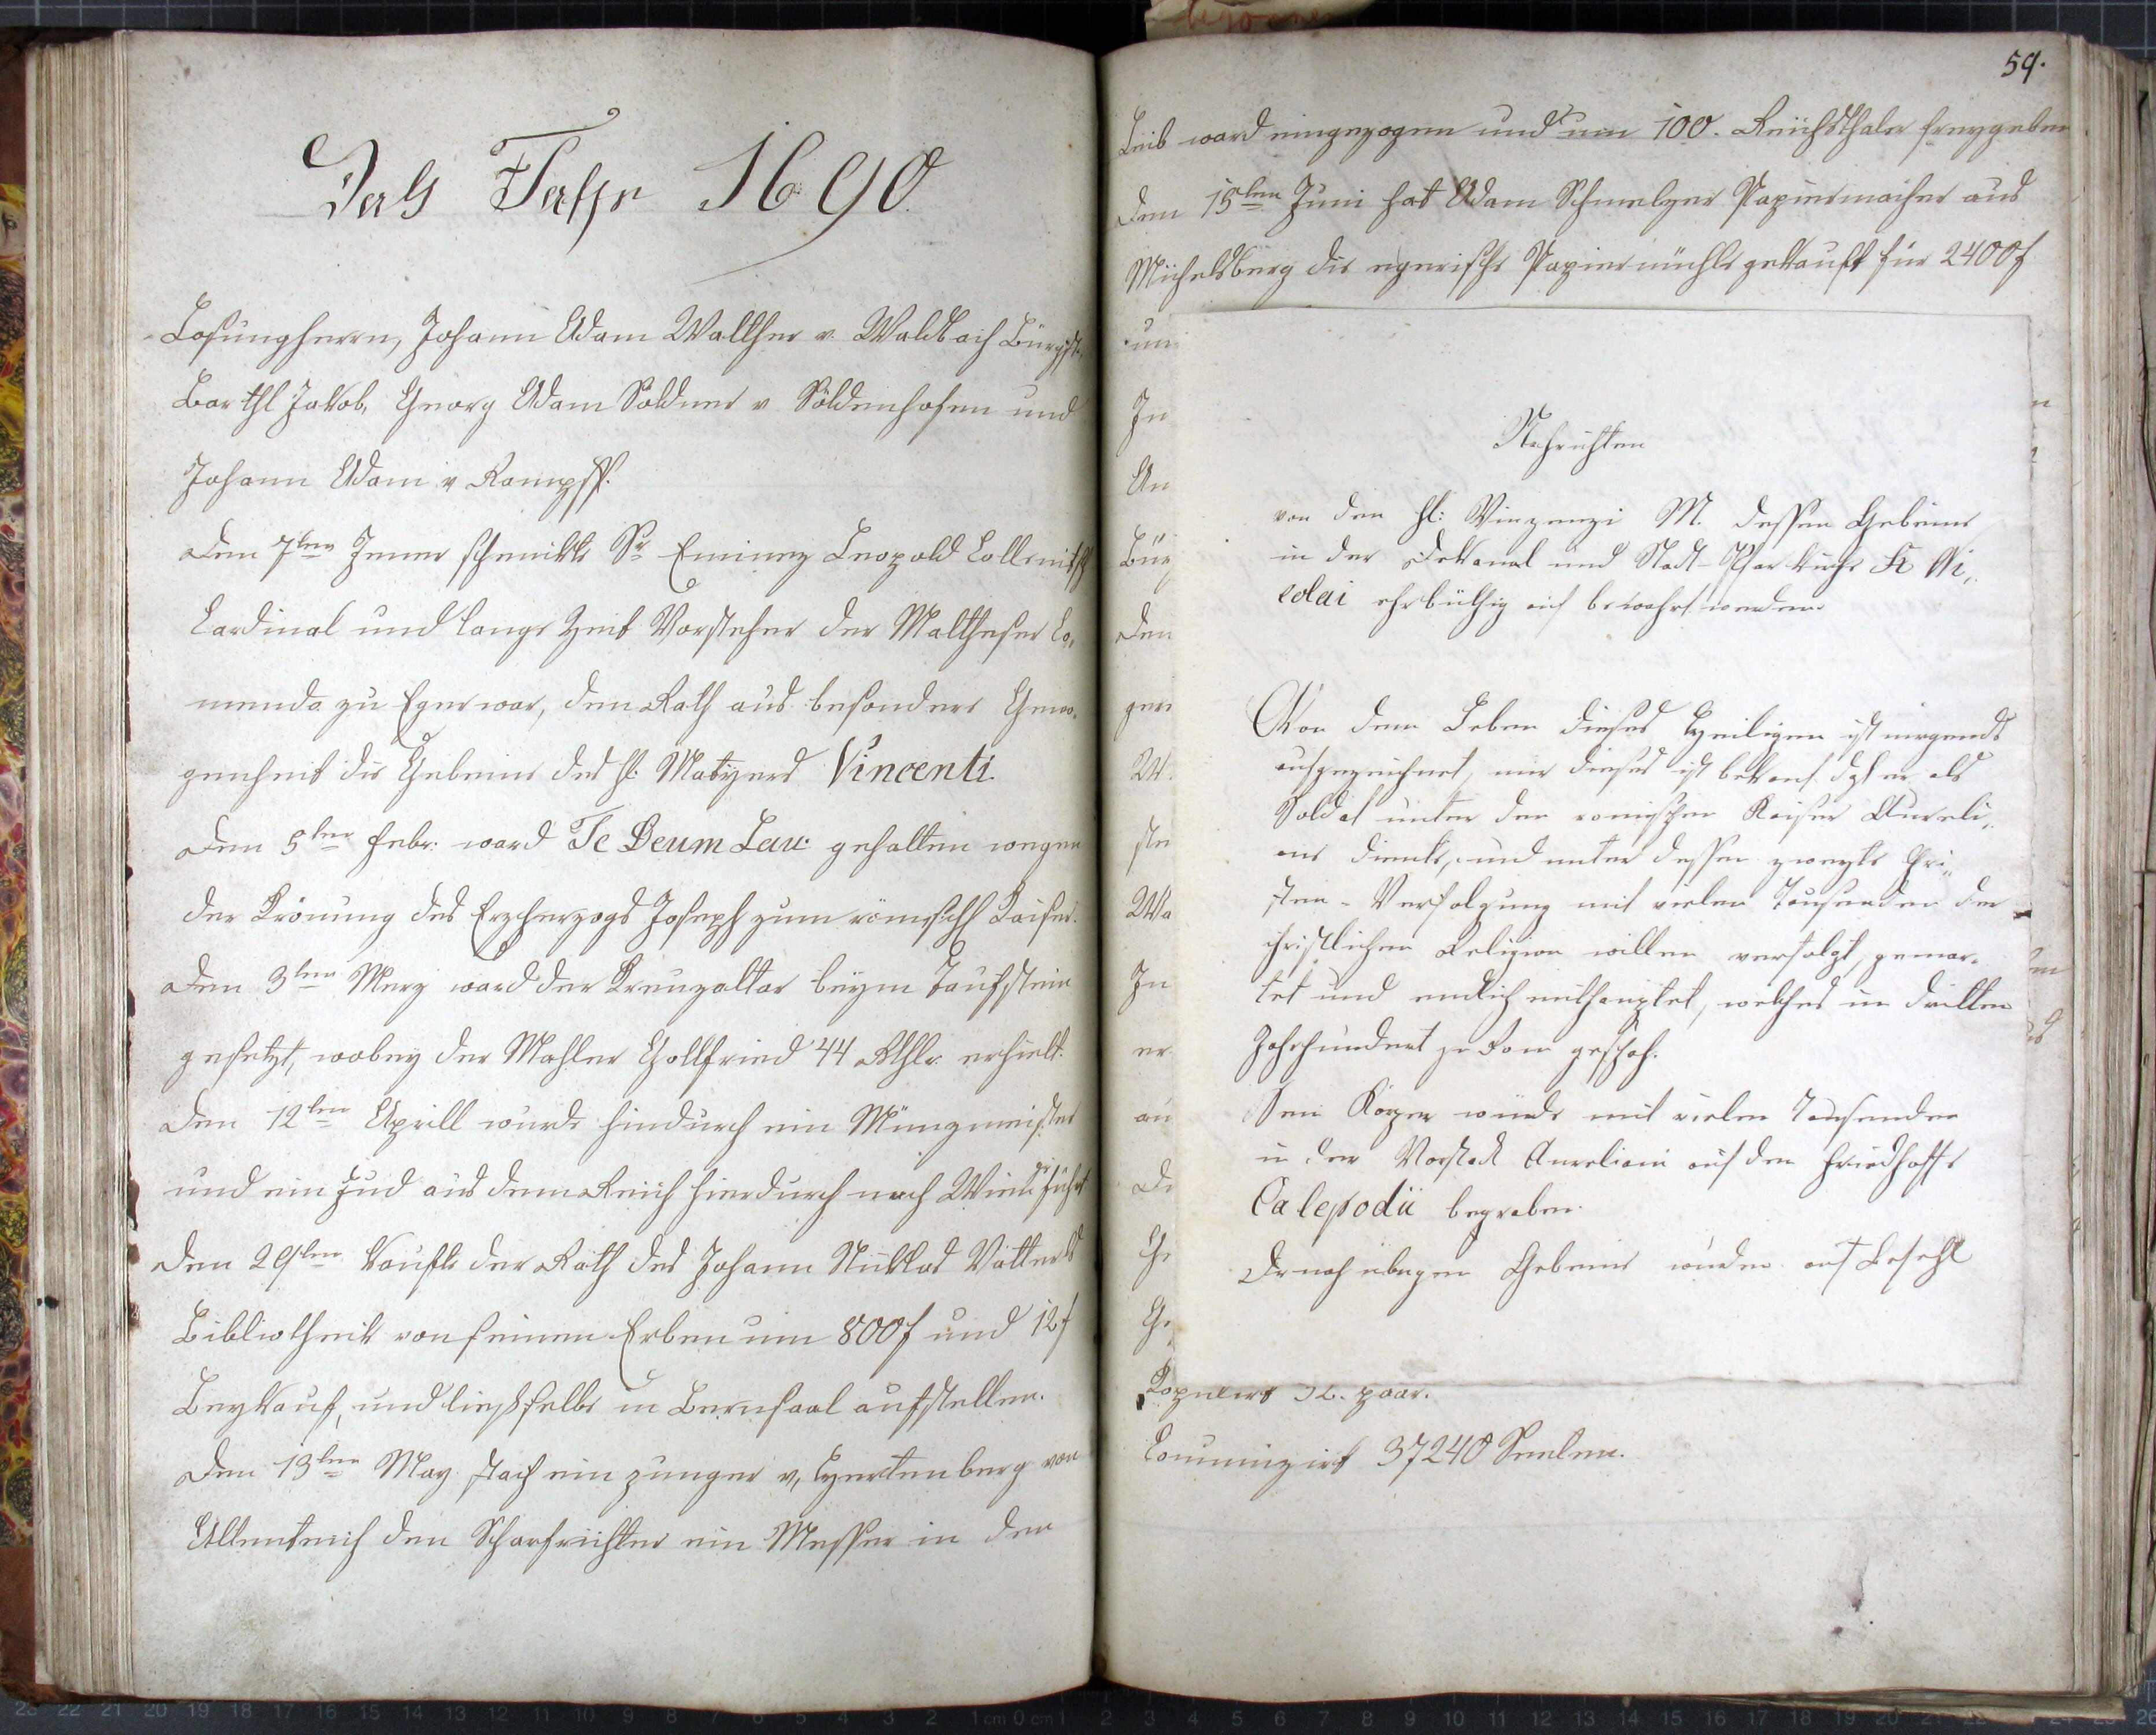 Das Jahr 1690
Losungherrn, Johann Adam Walther v. Waldbach Bürgst.
Barthl Jakob, Georg Adam Söldner v Söldenhofen und
Johann Adam v Rampff.
Den 7ten Jenner schenkte Sr Eminez Leopold Collnitsch
Cardinal und lange Zeit Vorsteher der Maltheser Co„
menda zu Eger war, dem Rath aus besonderer Gewo„
genheit die Gebeine des hl: Matyrers Vincenti.
Den 5ten Febr: ward Te Deum Lau: gehalten wegen
der Krönung des Erzherzogs Joseph zum römischh Kaiser.
Den 3ten Merz ward der Kreuzaltar beym Taufstein
gesetzt, wobey der Mahler Gottfried 44 Rthlr. erhielt.
Den 12ten Aprill wurde hindurch ein Münzmeister
und ein Jud aus dem Reich hierdurch nach Wien geführt
Den 29ten kaufte der Rath des Johann Nicklas Vetterls
Bibliotheik von seinen Erben um 800f und 12f
Leykauf, und ließ selbe in Lernsaal aufstellen.
Den 13ten May stach ein junger v. Hertenberg von
Altenteich den Scharfrichter ein Messer in den
59.
Leib ward eingezogen und um 100. Reichsthaler freygeben
Den 15ten Juni hat Adam Schmelzer Papiermacher aus
Michelsberg die egerische Papiermühle gekauft für 2400f
un
In
An
Bür
Den
gen
W.
ste
Wa
In
er
au
De
Ge
Ge
Nachrichten
von den hl: Vinzenzi M. dessen Gebeine
in der Dekanal und Stadt-Pfarkirche St Ni„
colai ehrbüthig auf bewahrt werden
Von dem Leben dieses Heiligen ist nirgends
aufgezeichnet, nur dieses ist bekant daß er als
Soldat unter den romischen Kaiser Aureli„
ans diente, und unter dessen zweyte Chri„
sten-Verfolgung mit vielen Tausenden der
christlichen Religion willen verfolgt, gemar-
tet und endlich enthauptet, welches im dritten
Jahrhundert zu Rom geschah.
Sein Körper wurde mit vielen Tausenden
in der Vorstadt Aureliani auf den Friedhoffe
Calepodii begraben.
Dernach übrigen Gebeine wurden auf Befehl
Kopulirt 32. paar.
Communizirt 37240 Seelen.